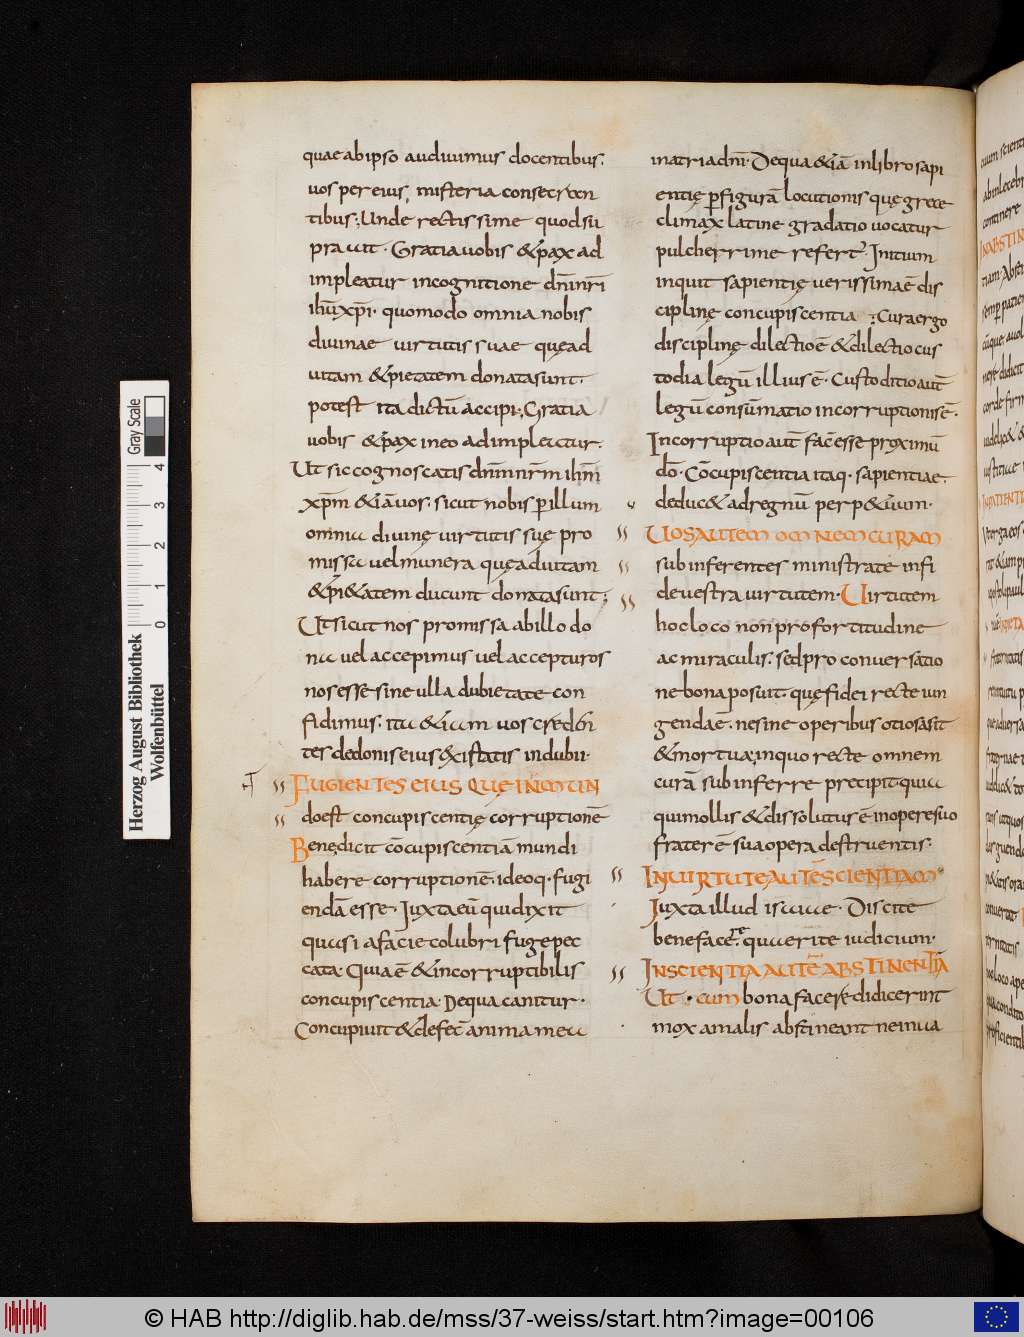 quae ab ipso audiuimus docentibus.
uos per eius, misteria consecran
tibus; Unde rectissime quod su
pra uit · Gratia uobis & pax ad
impleatur in cognitione dn̄i nr̄i
ih̄u xp̄i · quomodo omnia nobis
diuinae uirtutis suae quę ad
uitam & pietatem donata sunt ·
potest ita dictū accipi; Gratia
uobis & pax in eo adimpleatur ·
Ut sic cognoscatis dn̄m nr̄m ih̄m
xp̄m & iā uos. sicut nobis p̄ illum
omnia diuinę uirtutis suę pro
missa uel munera quę ad uitam
& pi&atem ducunt donata sunt;
Ut sicut nos promissa ab illo do
na uel accepimus uel accepturos
nos esse sine ulla dubietate con
fidimus. ita & iam uos credēn
tes de donis eius existatis indubii ·
FUGIENTES EIUS QUĘ IN MUN
do est concupiscentię corruptionē
Benę dicit cōcupiscentiā mundi
habere corruptionē. ideoq · fugi
endā esse. Juxta eū qui dixit
quasi a facie colubri fuge pec
cata · Quia ē & incorruptibilis
concupiscentia · De qua canitur ·
Concupiuit & defec̄ anima mea
in atria dn̄i · De qua &iā in libro sapi
entię p̄ figurā locutionis quę grece
climax latine gradatio uocatur
pulcherrime refert. Initium
inquit sapientię uerissima ē dis
ciplinę concupiscentia ; Cura ergo
disciplinę dilectio ē & dilectio cus
todia legū illius ē · Custoditio aut̄
legū consūmatio incorruptionis ē ·
Incorruptio aut̄ facē esse proximū
dō · Cōcupiscentia itaq · sapientiae ·
deduc& ad regnū perp&uum ·
UOS AUTEM OMNEM CURAM
subinferentes ministrate in fi
de uestra uirtutem · Uirtutem
hoc loco non pro fortitudine
ac miraculis. sed pro conuersatio
ne bona posuit. quę fidei recte iun
genda ē. ne sine operibus otiosa sit
& mortua; in quo recte omnem
curā subinferre precipit quia
qui mollis & dissolutus ē in opere suo
frater ē sua opera destruentis ·
IN UIRTUTE AUTĒ SCIENTIAM
Juxta illud isaiae · Discite
benefacere. quaerite iudicium ·
IN SCIENTIA AUTĒ ABSTINENTIĀ
Ut · cum bona facere didicerint
mox a malis abstineant ne in ua
Herzog August Bibliothek
Wolfenbüttel
Gray Scale
0 1 2 3 4
© HAB http://diglib.hab.de/mss/37-weiss/start.htm?image=00106